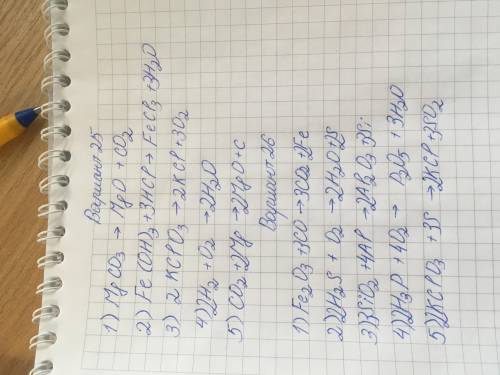 Вариант 25
1) MgCO3 → MgO + CO2
2) Fe(OH)3 + 3HCl → FeCl3 + 3H2O
3) 2 KClO3 → 2KCl + 3O2
4) 2H2 + O2 → 2H2O
5) CO2 + 2Mg → 2MgO + C
Вариант 26
1) Fe2O3 + 3CO → 3CO2 + 2Fe
2) 2H2S + O2 → 2H2O + 2S
3) 3SiO2 + 4Al → 2Al2O3 + 3Si
4) 2H3P + 4O2 → P2O5 + 3H2O
5) 2KClO3 + 3S → 2KCl + 3SO2